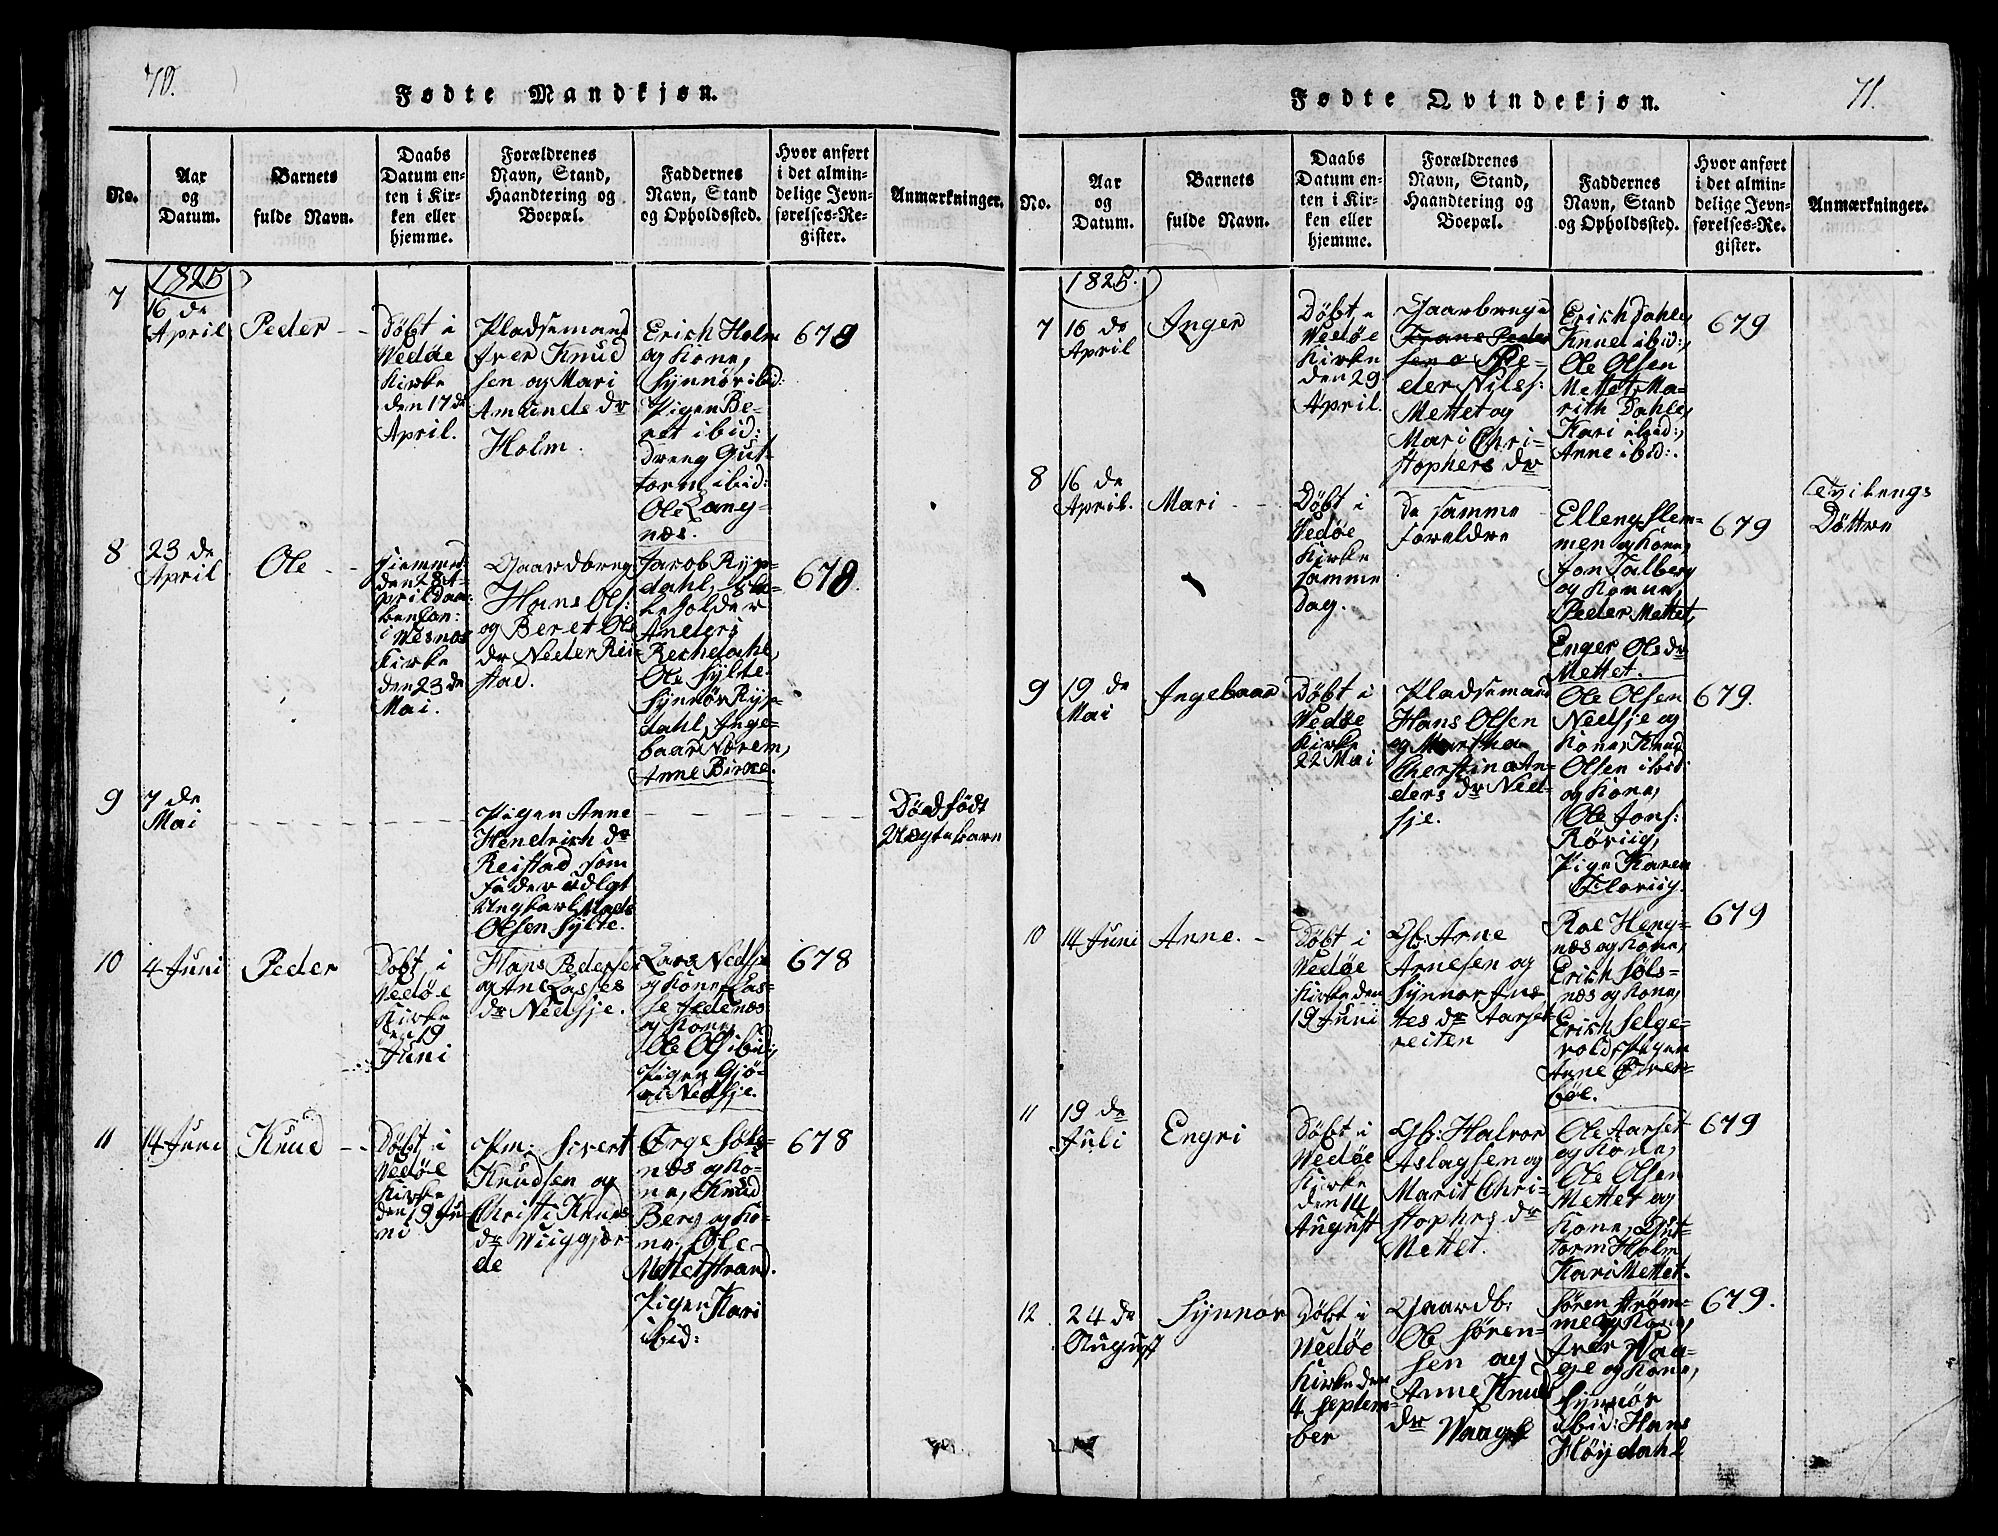 70.
Fødte Mandkjøn.
No.
Aar
og
Datum.
Barnets
fulde Navn.
Daabs
Datum en-
ten i Kir-
ken eller
hjemme.
Forældrenes
Navn, Stand,
Haandtering og
Boepæl.
Faddernes
Navn, Stand
og Opholdssted.
Hvor anført
i det almin-
delige Jevn-
førelses-Re-
gister.
Anmærkninger.
1825
7
16 de
April
Peder
Døbt i
Wedøe
Kirke
den 17 de
April.
Pladsemand
Iver Knud
sen og Mari
Amunds dr
Holm.
Erich Holm
og Kone,
Synnør ibid:
Pigen Be-
ret ibid:
Dreng Gut-
torm ibid:
Ole Lang-
næs.
678
8
23 de
April
Ole
Hiemmed:
den 28 A-
pril Daa-
ben Con:
i Wesnæs
Kirke
den 23 de
Mai.
Gaardbrug:
Hans Ols:
og Beret Ole
dr Neder Rei-
stad.
Jacob Ryp-
dahl,
beholder
Anders
Rechdahl,
Ole Sylte
Synnør Ryp-
dahl, Inge-
baar Nærem,
Anne Birke.
678
9
7 de
Mai
Pigen Anne
Hendrich dr
Reistad som
Fader udlgt
Ungkarl Mads
Olsen Sylte.
Dødfødt
Uægtebarn
10
4 Juni
Peder
Døbt i
Wedøe
Kirke
den 19
Juni
Hans Pedersen
og Ane Lasses
dr Nedsje.
Lars Nedsje
og Kone, Las-
se Indenæs
og Kone
Ole Ols ibid:
Pigen Gjø-
ri Nedsje.
678
11
14 Juni
Knud
Døbt i
Wedøe
Kirke
den 19 Ju-
ni
Pm: Sivert
Knudsen og
Christi Knuds
dr Wiiggjer-
de
Ørge Søls-
næs og Ko-
ne, Knud
Berg og Ko-
ne. Ole
Mettetstrand.
Pigen Kari
ibid:
678
71.
Fødte Qvindekjøn.
No.
Aar
og
Datum.
Barnets
fulde Navn.
Daabs
Datum en-
ten i Kir-
ken eller
hjemme.
Forældrenes
Navn, Stand,
Haandtering og
Boepæl.
Faddernes
Navn, Stand
og Opholdssted.
Hvor anført
i det almin-
delige Jevn-
førelses-Re-
gister.
Anmærkninger.
1825.
7
16 de
April
Inger
Døbt i
Wedøe
Kirke
den 29
April.
Gaardbruge
Trone Peder
sen o Pe-
der Nils:
Mettet og
Mari Chri-
stophers dr
Erich Dahle,
Knud ibid:,
Ole Olsen
Mettet, Ma-
rith Dahle,
Kari ibid:,
Anne ibid:.
679
8
16 de
April.
Mari
Døbt i
Wedøe
Kirke
samme
Dag.
De samme
Foreldre
Elleng Slem-
men og Kone,
Jon Talberg
og Konne,
Peder Mettet,
Enger Ols dr
Mettet.
679
Tvilengs
Døttre
9
19 de
Mai
Ingebaar
Døbt i
Wedøe
Kirke
22 Mai
Pladsemand
Hans Olsen
og Martha
Cherstina An-
ders dr Ned-
sje.
Ole Olsen
Nedsje og
Kone, Knud
Olsen ibid:
og Kone,
Ole Jons:
Røviig,
Pige Karen
Floviig.
679.
10
14 Juni
Anne.
Døbt i
Wedøe
Kirke den
19 Juni
Gb: Arne
Arnesen og
Synnor
tes dr Aarset-
reiten
Roe Heng-
næs og Kone,
Erich Søls-
næs og Kone,
Erich Selge-
vold, Pigen
Anne Øver-
bøe.
679
11
19 de
Juli
Engri
Døbt i
Wedøe
Kirke
den 14
August
Gb: Halvor
Aslagsen og
Marit Chri-
stophrs dr
Mettet.
Ole Aarset
og Kone,
Ole Olsen
Mettet og
Kone, Gut-
torm Holm,
Kari Mettet.
679
12
24 de
August
Synnør
Døbt i
Wedøe
Kirke den
4 Septem-
ber
Gaardb:
Ole Søren-
sen og
Anne Knuds
dr Waage
Søren Strøm-
me og Kone,
Iver Waa-
ge og Kone,
Synnør
ibid: Hans
Høydahl
679.